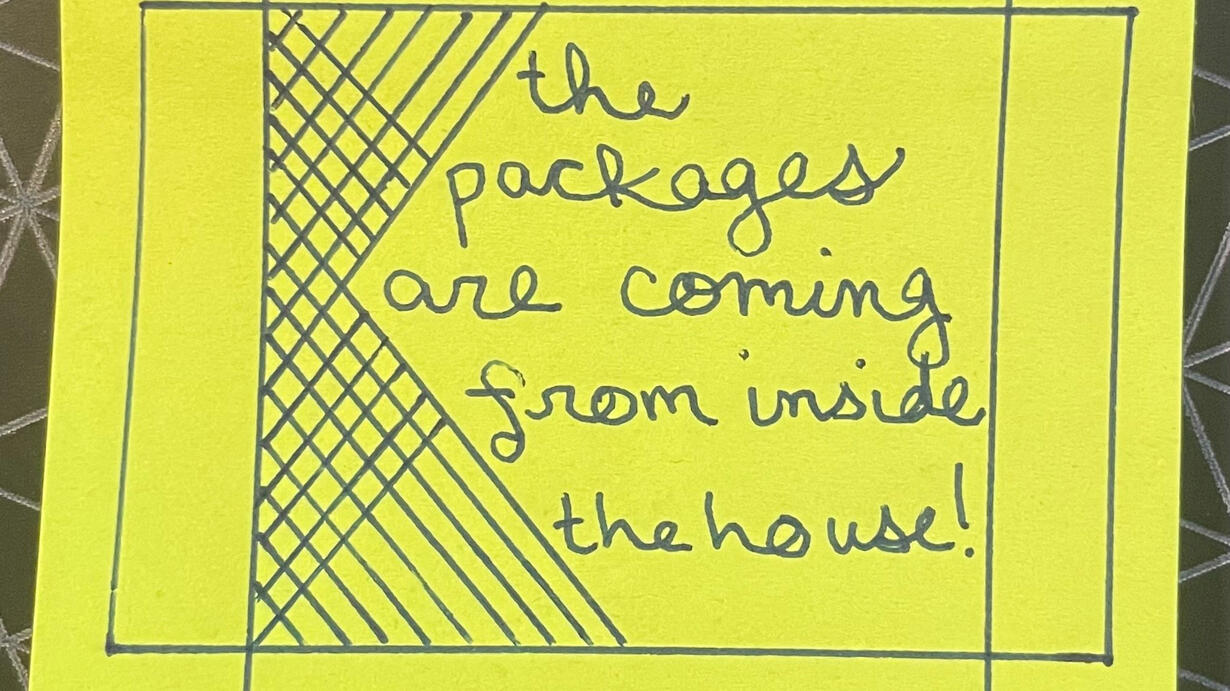 the
packages
are coming
from inside
the house!